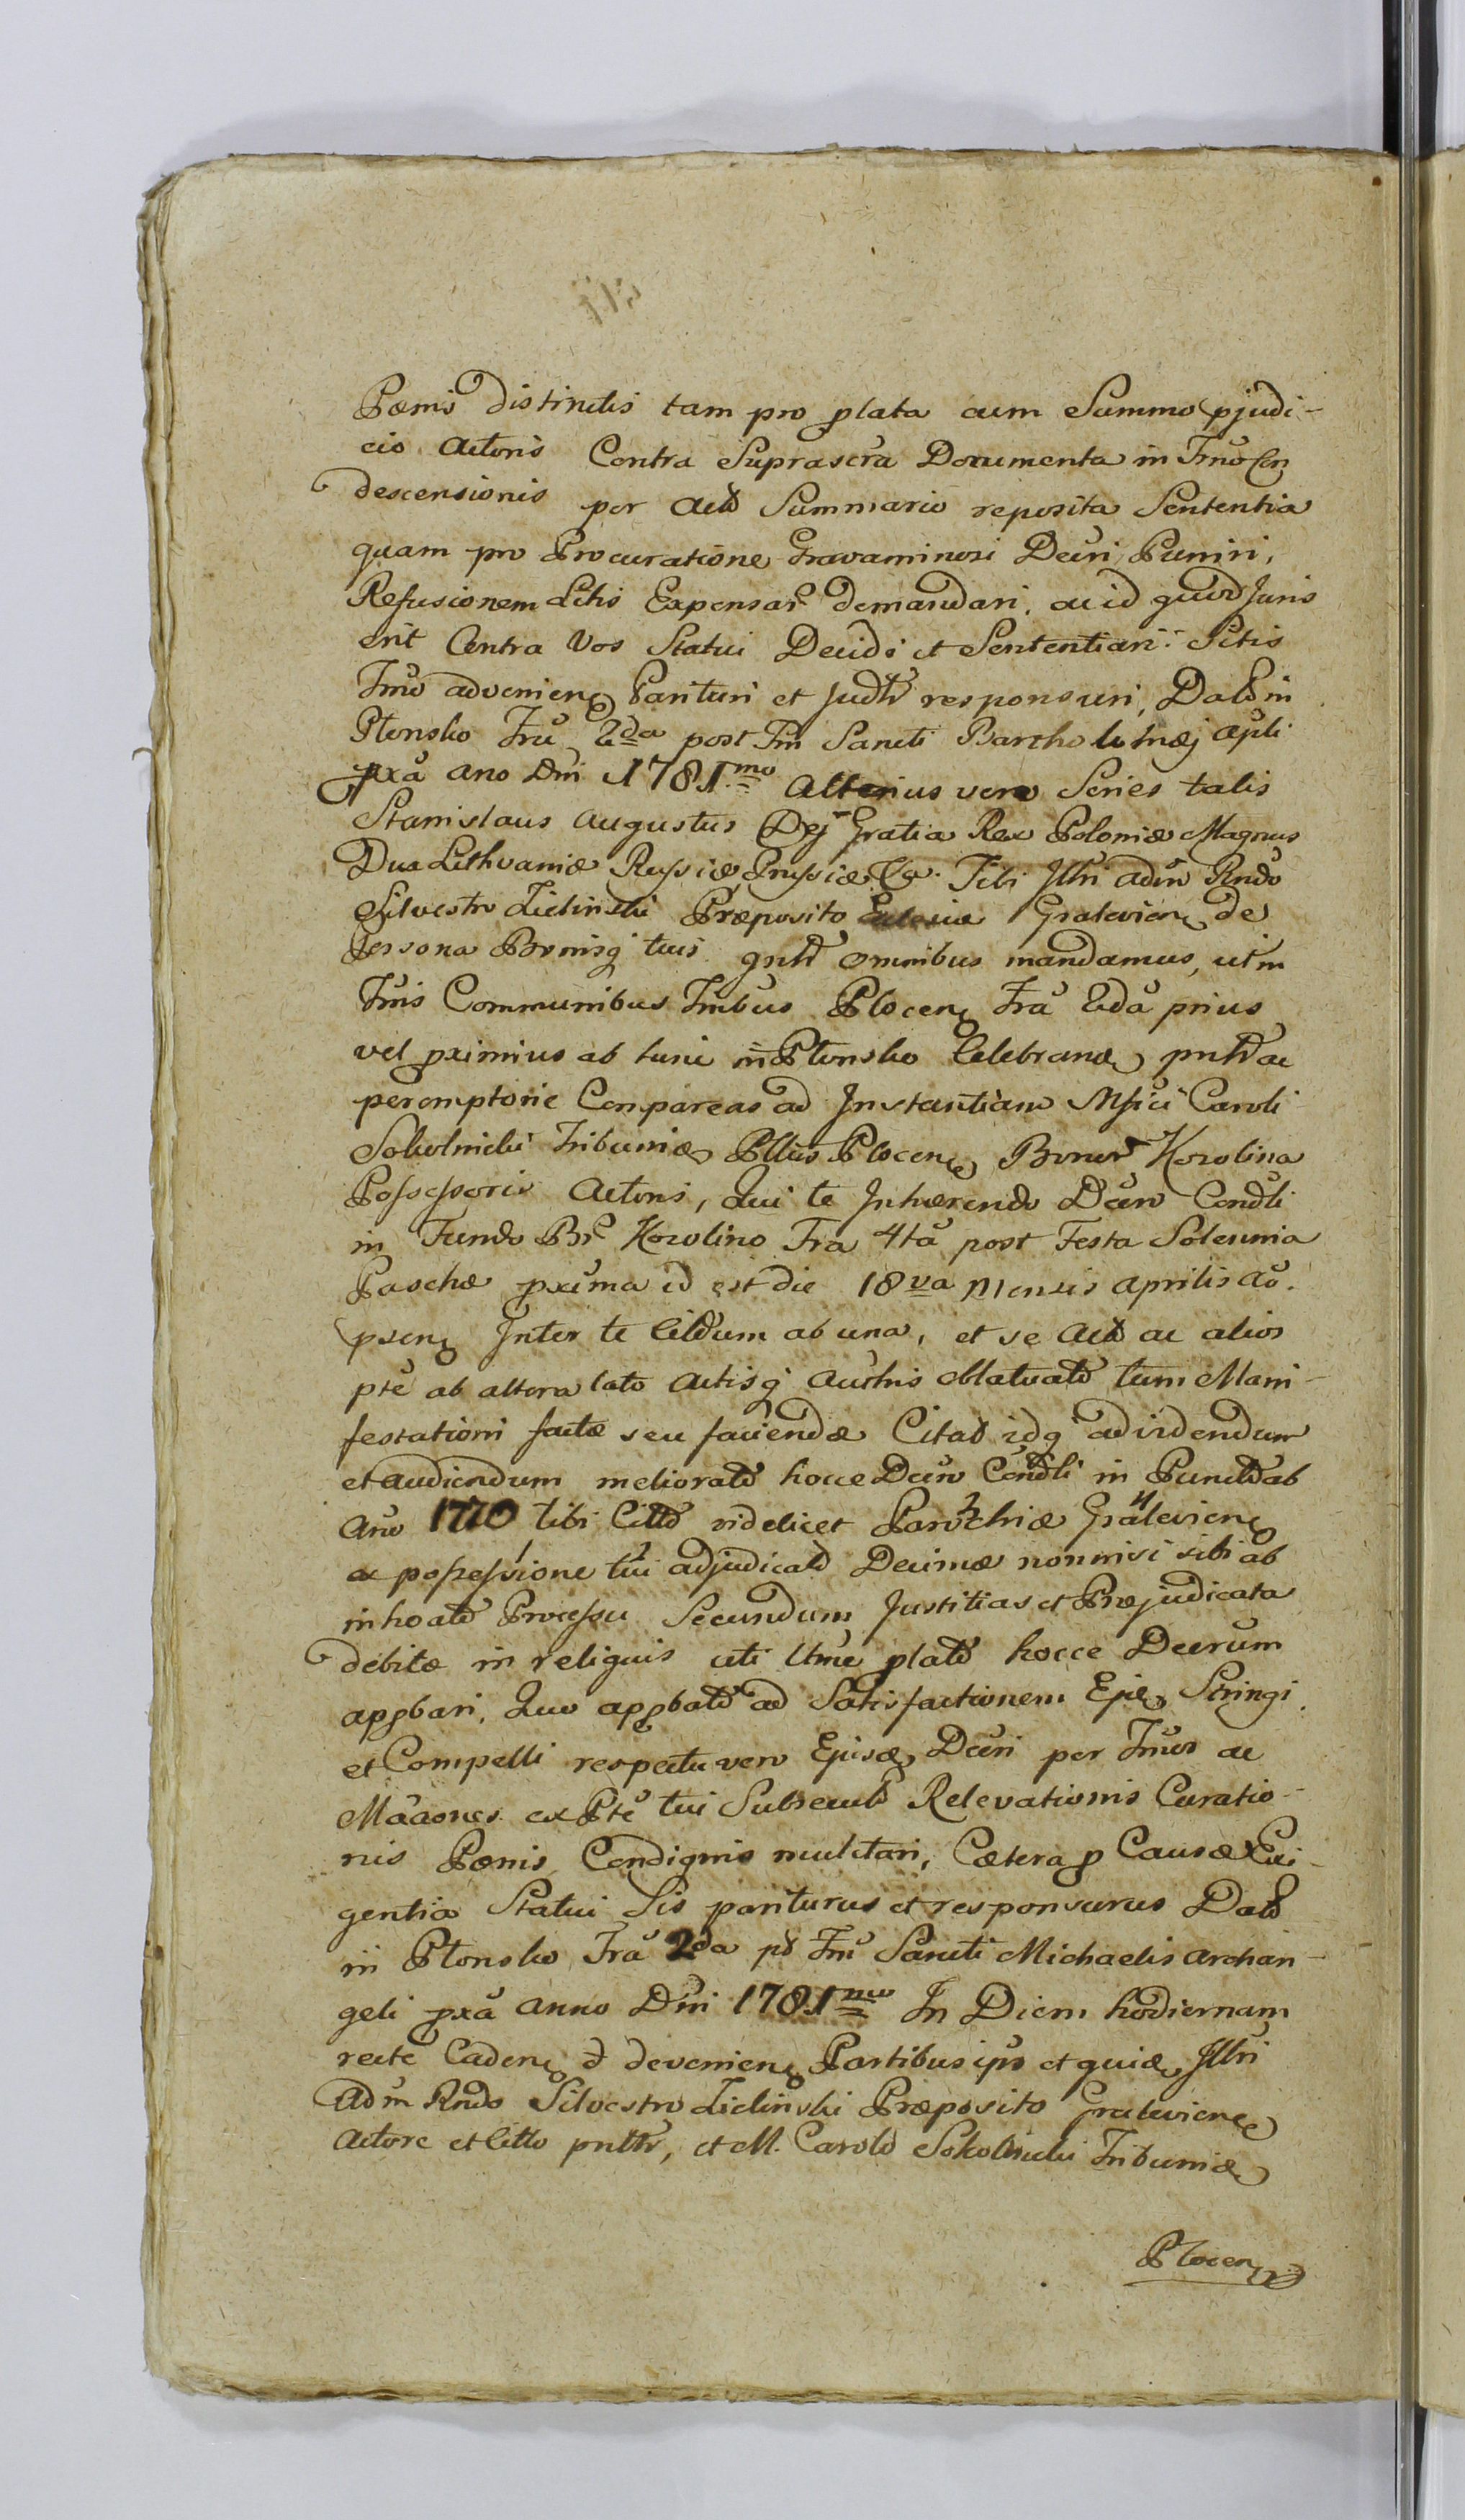 Pœnis distinctis tam pro plata cum Summo pjudi-
cio Actoris Contra Suprascra Documenta in Tmo Con
descensionis per Actō Summario reposita Sententia
quam pro Procuratione Gravaminosi Decri Puniri,
Refusionem Litis Expensar demandari, ac id quod Juris
erit Contra Vos Statui Decidi et Sententiari. Sitis
Tmo advenien Parituri et Judtr responsuri, Datō in
Plonsko Fra 2da post Fm Sancti Bartholomæj Apli
pxa Ano Dni 1781mo Alterius vero Series talis
Stanislaus Augustus Dej Gratia Rex Poloniæ Magnus
Dux Lithvaniæ Russiæ Prussiæ &a. Tibi Illri Adm Rndo
Silvestro Zielinski Præposito Eclesiæ Gralevien de
Persona Bonisq tuis gnltr omnibus mandamus, ut in
Tmis Communibus Tmibus Plocen Fra 2da prius
vel pximius ab tunc in Plonsko Celebran pnltr ac
peremptorie Compareas ad Instantiam Mfici Caroli
Sokolnicki Tribuni Pllus Plocen Bonor Kozolina
Possessoris Actoris, Qui te Inhærendo Decro Condli
in Fundo Br Kozolino Fra 4ta post Festa Solemnia
Paschæ pxima id est die 18va Mensis Aprilis Ao.
psen Inter te Citdum ab una, et se Actō ac alios
pte ab altera lato Actisq Authis Oblatvatō tum Mani-
festationi factæ seu faciendæ Citatō idq ad videndum
et audiendum melioratō hocce Decro Condli in Punctō ab
Ano 1770 tibi Cittō videlicet Parochiæ Gralevien
ex possessione tui adjudicatō Decimæ nonnisi sibi ab
inhoatō Processu Secundum Justitias et Præjudicata
debitæ in reliquis uti Ltme platō hocce Decrum
appbari, Quo appbatō ad Satisfactionem Ejus Stringi
et Compelli respectu vero Ejus Decri per Tmos ac
Mãaones ex Pte tui Subsecutō Relevationis Curatio-
nis Pœnis Condignis mulctari, Cætera p Causæ Exi-
gentia Statui Sis pariturus et responsurus Datō
in Plonsko Fra 2da pt Fm Sancti Michaelis Archan-
geli pxa Anno Dni 1781mo In Diem hodiernam
recte Caden & devenien Partibus ips et quia Illri
Adm Rndo Silvestro Zielinski Præposito Gralevien
Actore et Citto pnltr, et M. Carolo Sokolnicki Tribuni
Plocen